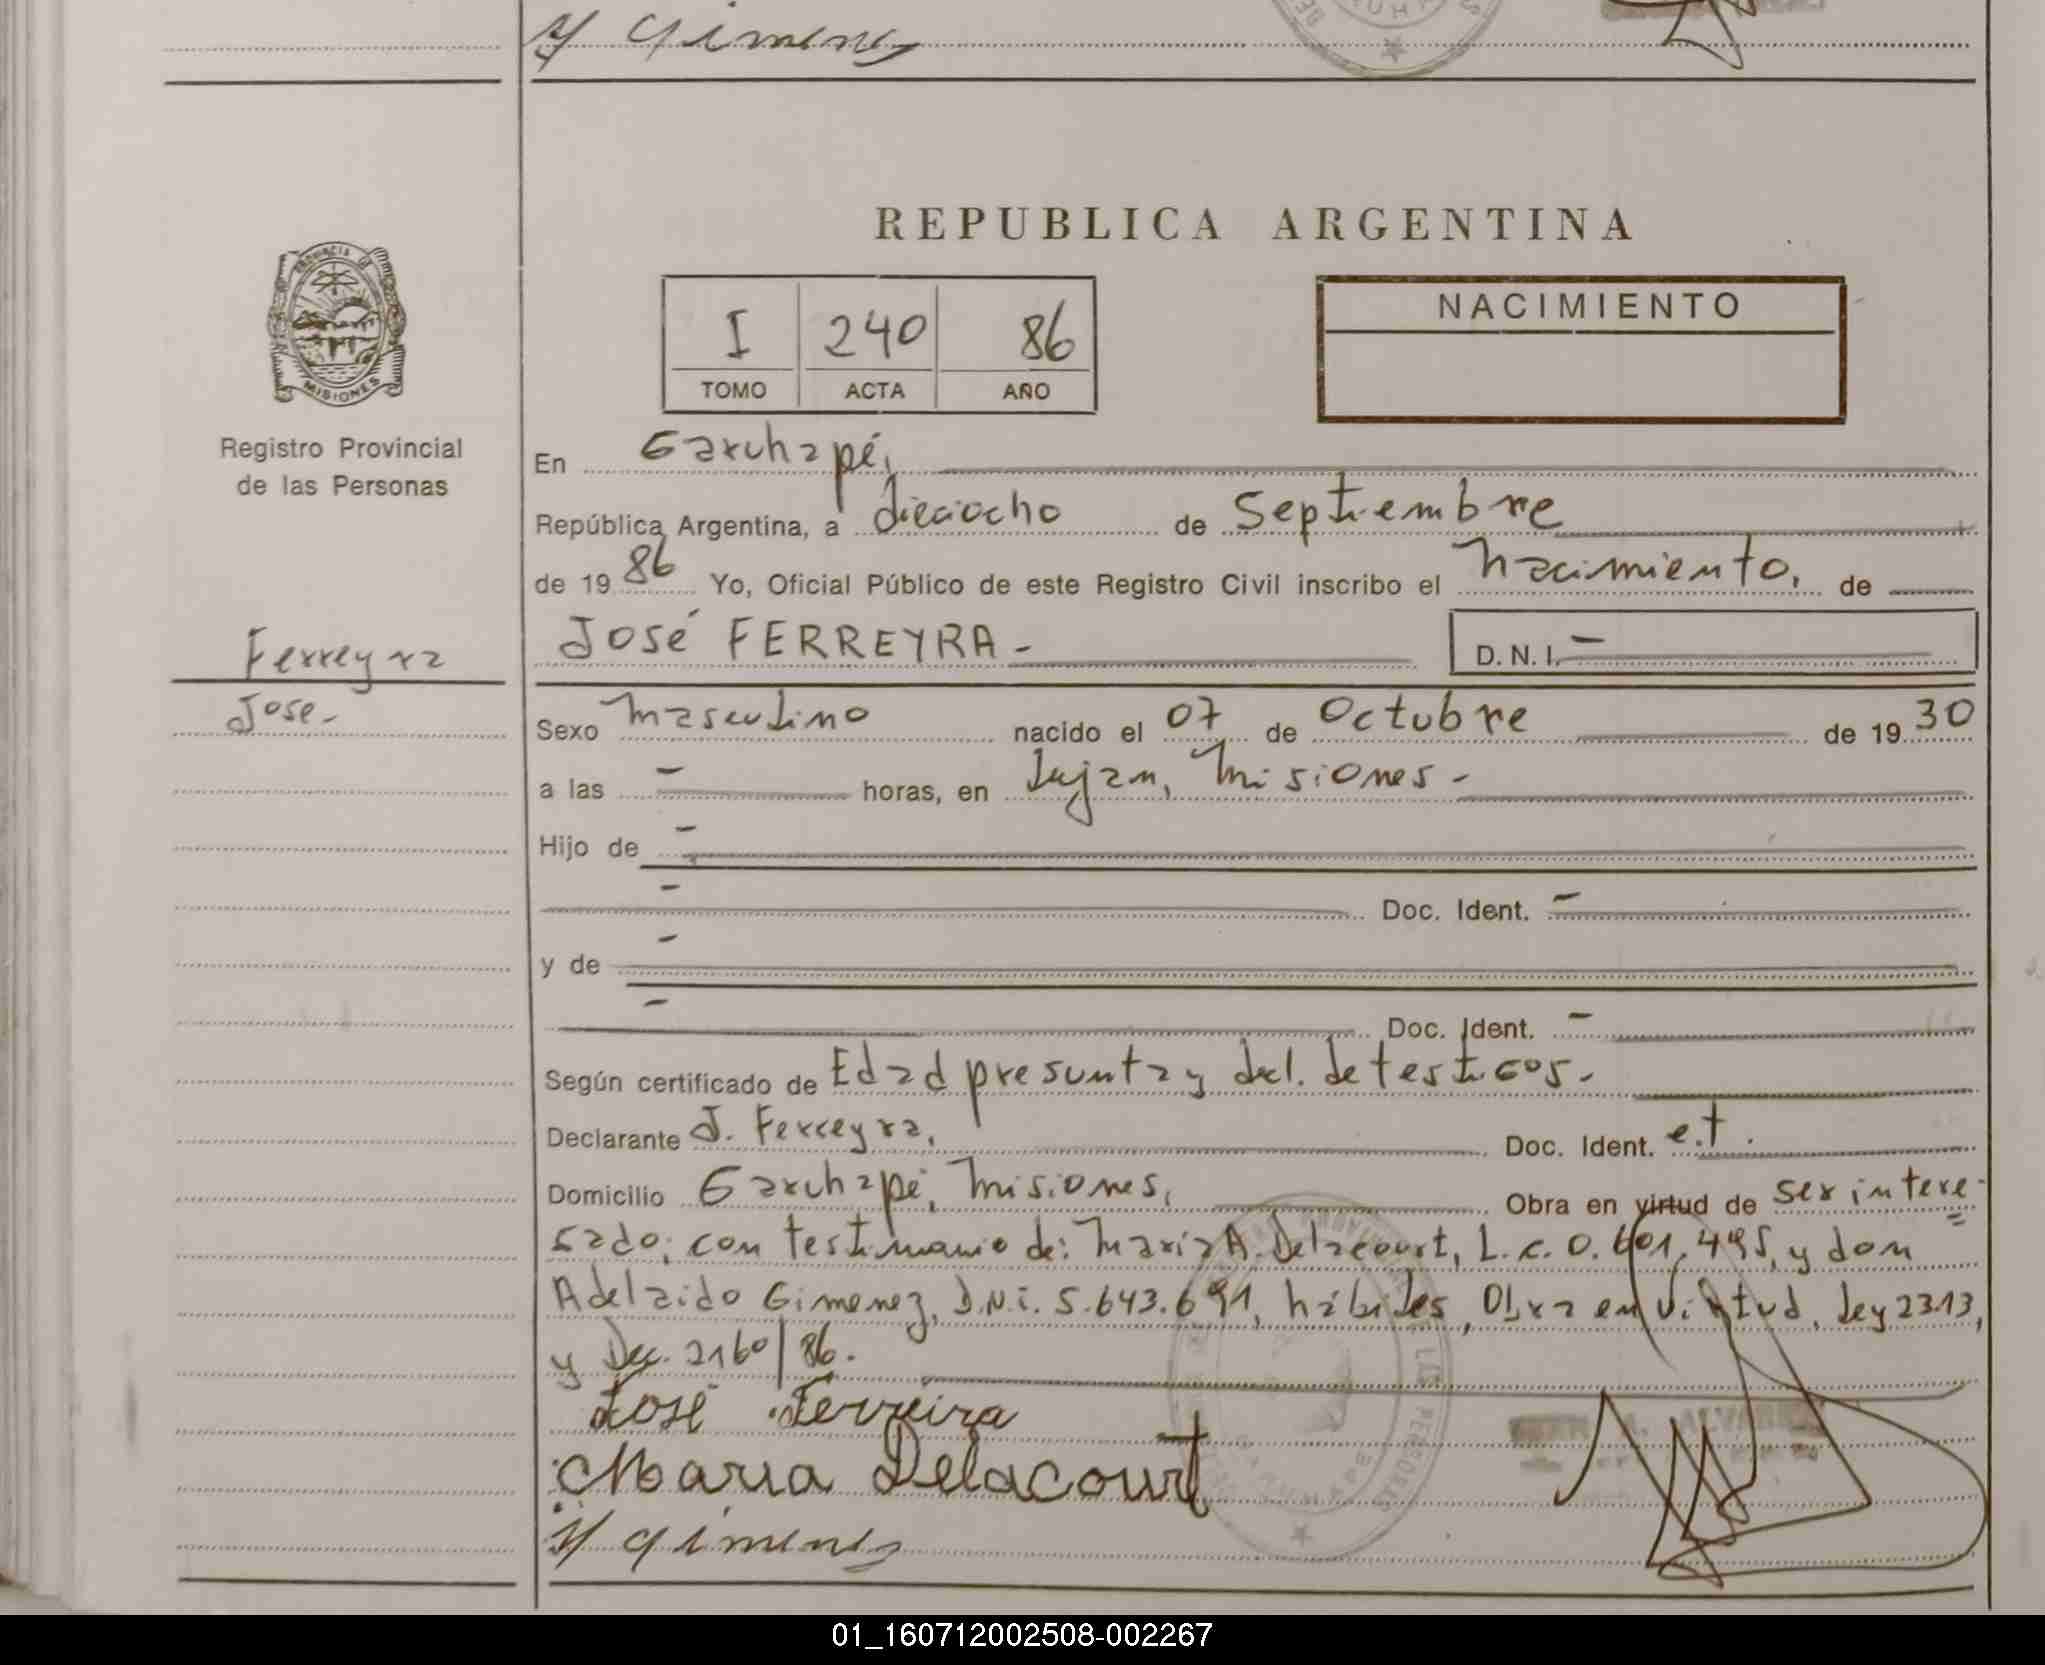 y Gimenez
REPUBLICA ARGENTINA
PROVINCIA DE
MISIONES
Registro Provincial
de las Personas
I 240 86
TOMO ACTA AÑO
NACIMIENTO
En Garuhapé,
República Argentina, a dieciocho de Septiembre
de 1986 Yo, Oficial Público de este Registro Civil inscribo el Nacimiento, de
Ferreyra
José.
JOSÉ FERREYRA - D.N.I. -
Sexo Masculino nacido el 07 de Octubre de 1930
a las - horas, en Lujan, Misiones -
Hijo de -
- Doc. Ident. -
y de -
- Doc. Ident. -
Según certificado de Edad presunta y decl. de testigos.
Declarante J. Ferreyra, Doc. Ident. e.t.
Domicilio Garuhapé, Misiones, Obra en virtud de ser intere-
sado; con testimonio de: Maria A. Delacourt, L.C. 0.601.495, y don
Adelaido Gimenez, D.N.i. 5.643.691, hábiles, Obra en Virtud, Ley 23.13,
y Dec. 2160/86.
José Ferreira
Maria Delacourt
y Gimenez
ALVAREZ
01_160712002508-002267